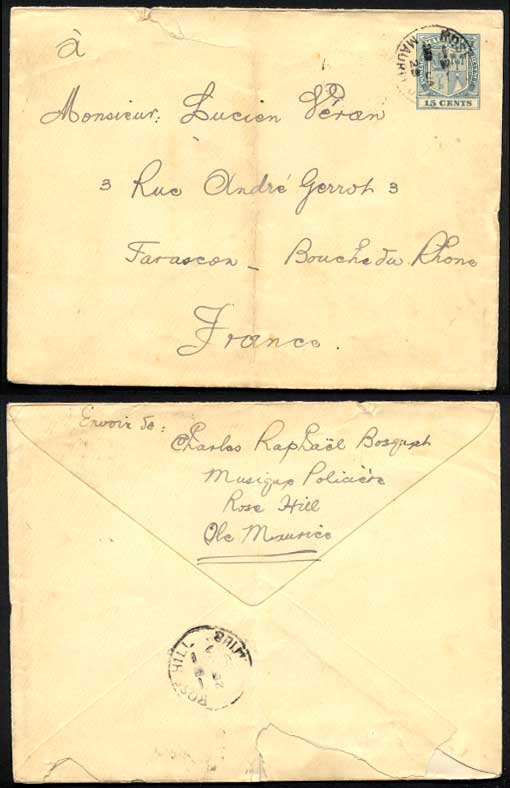 à
Monsieur. Lucien Véran
3 Rue André Gerrot 3
Tarascon - Bouche du Rhone
France.
15 CENTS
ROSE
MAURI
Envoir de:
Charles Raphaël Bosquet
Musique Policière
Rose Hill
Ole Maurice
ROSE HILL